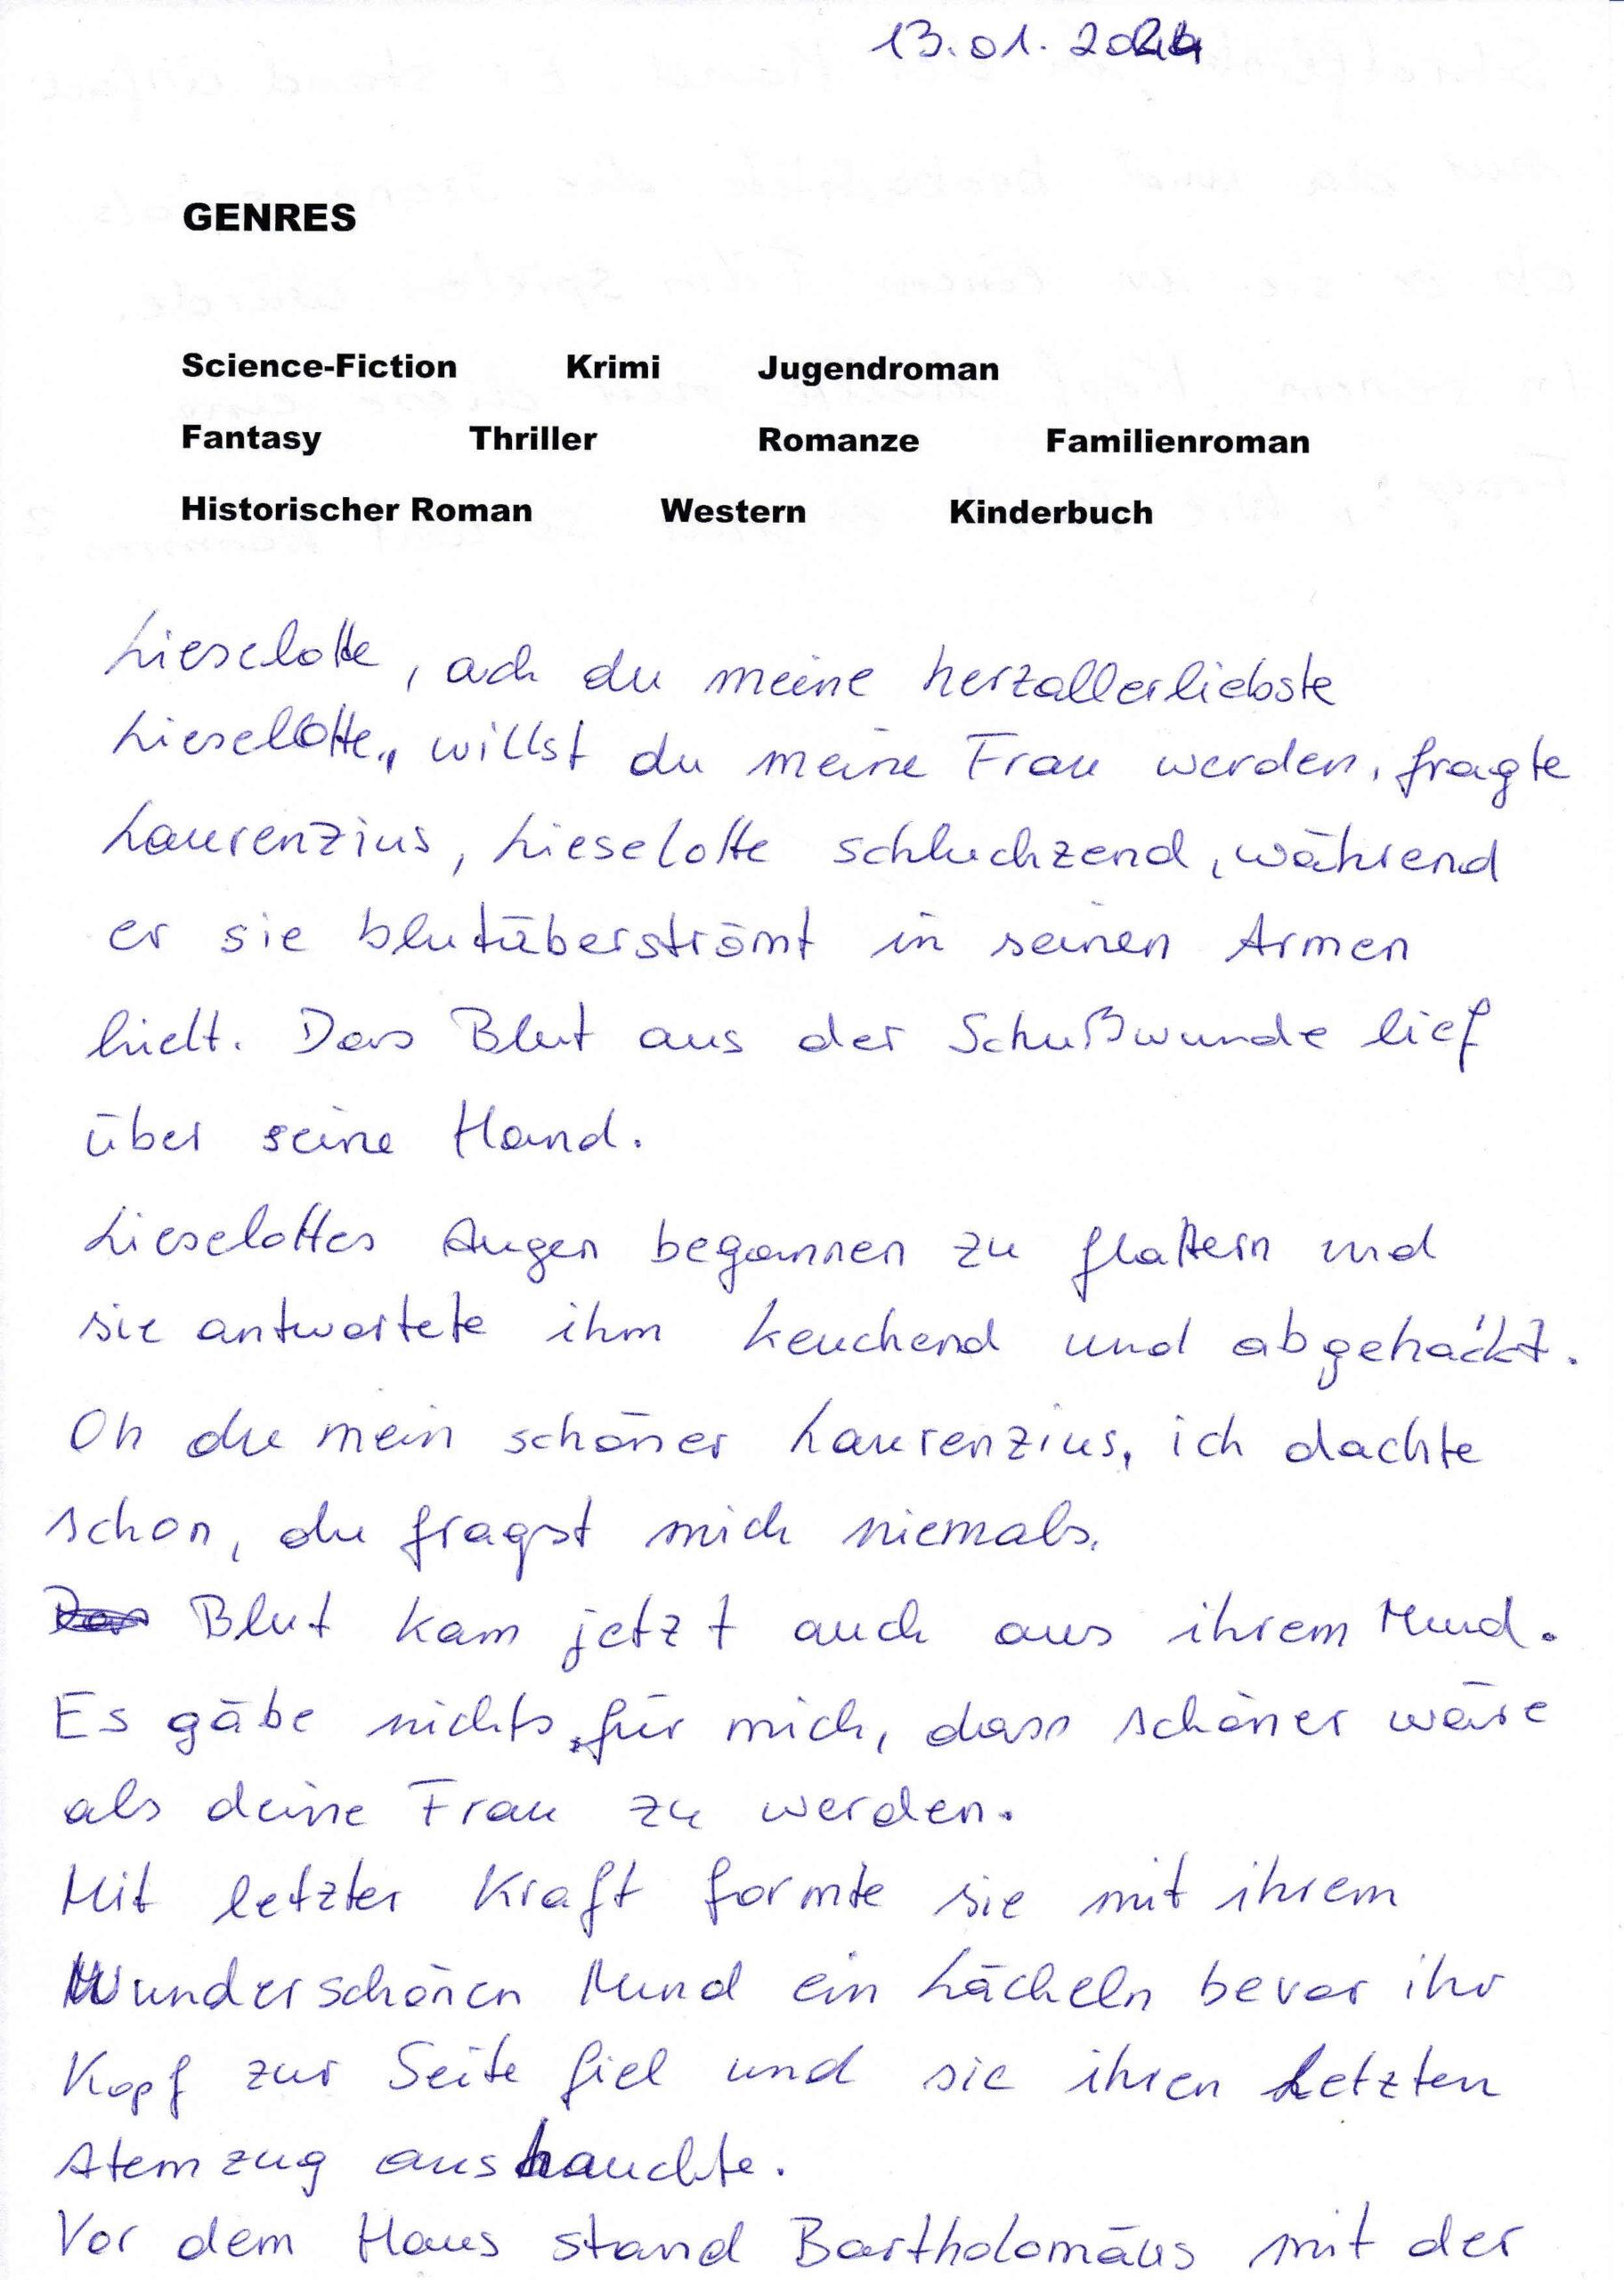 13.01.2024
GENRES
Science-Fiction Krimi Jugendroman
Fantasy Thriller Romanze Familienroman
Historischer Roman Western Kinderbuch
Lieselotte, ach du meine herzallerliebste
Lieselotte, willst du meine Frau werden, fragte
Laurenzius, Lieselotte schluchzend, während
er sie blutüberströmt in seinen Armen
hielt. Das Blut aus der Schußwunde lief
über seine Hand.
Lieselottes Augen begannen zu flattern und
sie antwortete ihm keuchend und abgehackt.
Oh du mein schöner Laurenzius, ich dachte
schon, du fragst mich niemals.
Blut kam jetzt auch aus ihrem Mund.
Es gäbe nichts für mich, dass schöner wäre
als deine Frau zu werden.
Mit letzter Kraft formte sie mit ihrem
Wunderschönen Mund ein Lächeln bevor ihr
Kopf zur Seite fiel und sie ihren letzten
Atemzug aushauchte.
Vor dem Haus stand Bartholomäus mit der